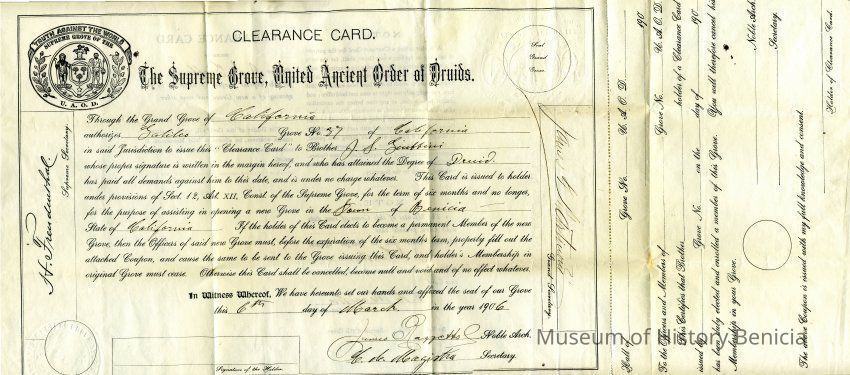 TRUTH AGAINST THE WORLD
SUPREME GROVE OF THE
U.A.O.D.
CLEARANCE CARD.
The Supreme Grove, United Ancient Order of Druids.
Seal
Grand
Grove.
Through the Grand Grove of California
authorizes Galileo Grove No. 37 of California
in said Jurisdiction to issue this "Clearance Card" to Brother J. S.
whose proper signature is written in the margin hereof, and who has attained the Degree of Druid.
has paid all demands against him to this date, and is under no charge whatever. This Card is issued to holder
under provisions of Sect. 12, Art. XII, Const. of the Supreme Grove, for the term of six months and no longer,
for the purpose of assisting in opening a new Grove in the Town of Benicia
State of California If the holder of this Card elects to become a permanent Member of the new
Grove, then the Officers of said new Grove must, before the expiration of the six months term, properly fill out the
attached Coupon, and cause the same to be sent to the Grove issuing this Card, and holder's Membership in
original Grove must cease. Otherwise this Card shall be cancelled, become null and void and of no effect whatever.
In Witness Whereof, We have hereunto set our hands and affixed the seal of our Grove
this 6th day of March in the year 1906
James Noble Arch.
Secretary.
Signature of the Holder.
Supreme Secretary.
Grand Secretary.
Hall of Grove No. U. A. O. D. 190
To the Officers and Members of Grove No. U. A. O. D.
This Certifies that Brother holder of a Clearance Card
issued by Grove No. on the day of 190
has been duly elected and enrolled a member of this Grove. You will therefore cancel his
Membership in your Grove.
Noble Arch.
Secretary.
The above Coupon is issued with my full knowledge and consent.
Holder of Clearance Card.
Museum of History Benicia